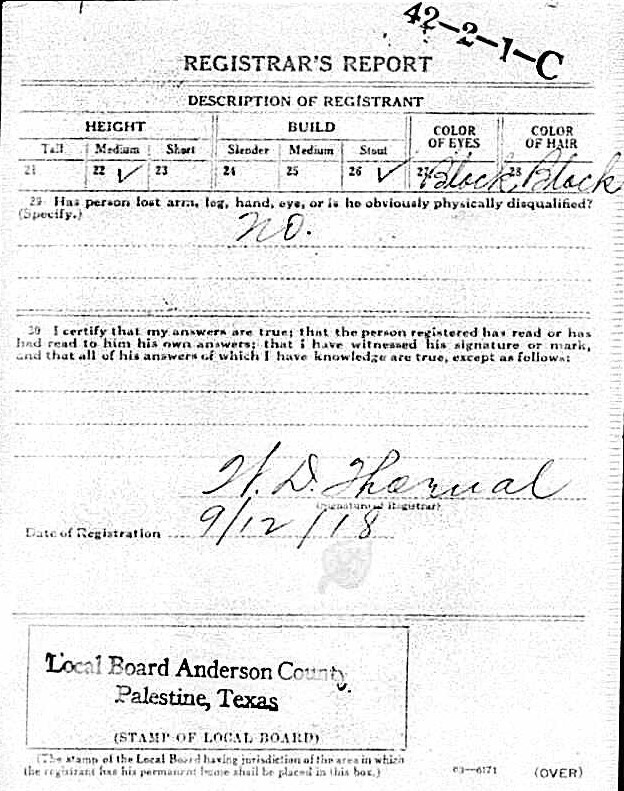 42-2-1-C
REGISTRAR'S REPORT
DESCRIPTION OF REGISTRANT
HEIGHT BUILD COLOR OF EYES COLOR OF HAIR
Tall Medium Short Slender Medium Stout
21 22 ✓ 23 24 25 26 ✓ 27 Black 28 Black
29 Has person lost arm, leg, hand, eye, or is he obviously physically disqualified?
(Specify.)
No.
30 I certify that my answers are true; that the person registered has read or has
had read to him his own answers; that I have witnessed his signature or mark,
and that all of his answers of which I have knowledge are true, except as follows:
D.
(Signature of Registrar)
Date of Registration 9/12/18
Local Board Anderson County.
Palestine, Texas
(STAMP OF LOCAL BOARD)
(The stamp of the Local Board having jurisdiction of the area in which
the registrant has his permanent home shall be placed in this box.)
03—6171 (OVER)